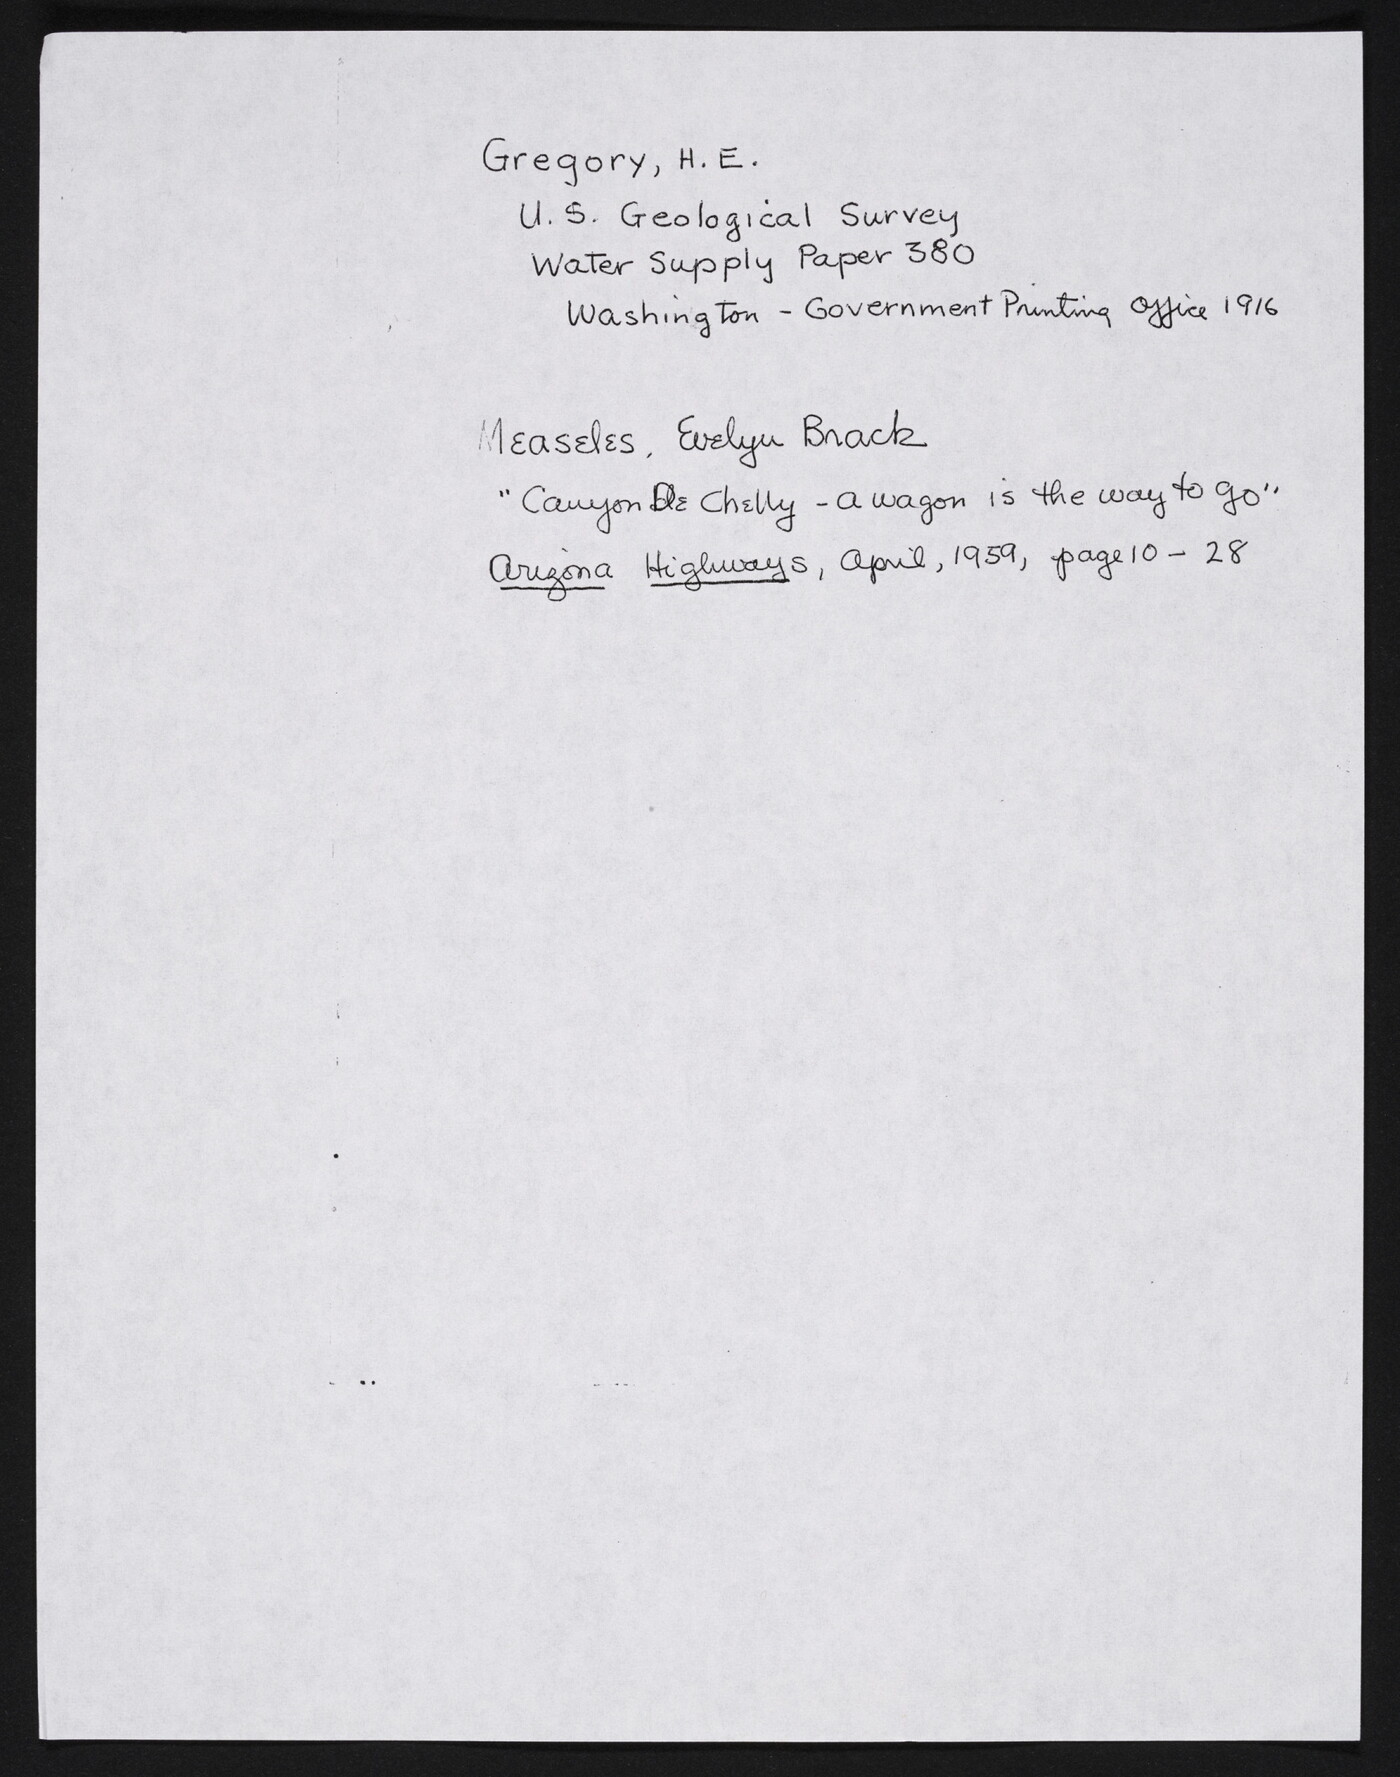 Gregory, H. E.
U. S. Geological Survey
Water Supply Paper 380
Washington - Government Printing Office 1916
Measeles, Evelyn Brack
"Canyon De Chelly - a wagon is the way to go"
Arizona Highways, April, 1959, page 10 - 28